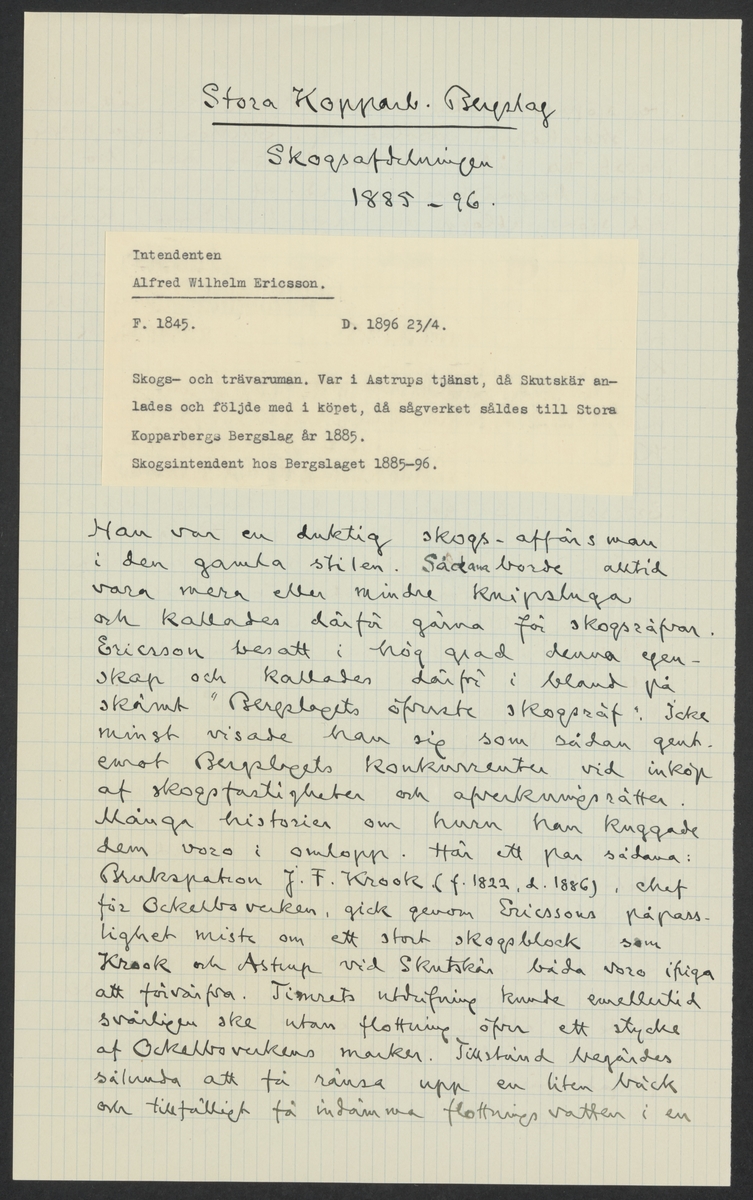 Stora Kopparb. Bergslag
Skogsafdelningen
1885 – 96.
Intendenten
Alfred Wilhelm Ericsson.
F. 1845. D. 1896 23/4.
Skogs- och trävaruman. Var i Astrups tjänst, då Skutskär an-
lades och följde med i köpet, då sågverket såldes till Stora
Kopparbergs Bergslag år 1885.
Skogsintendent hos Bergslaget 1885-96.
Han var en duktig skogs-affärsman
i den gamla stilen. Sådana borde alltid
vara mera eller mindre knipsluga
och kallades därför gärna för skogsräfvar.
Ericsson besatt i hög grad denna egen-
skap och kallades därför i bland på
skämt "Bergslagets öfverste skogsräf". Icke
minst visade han sig som sådan gent-
emot Bergslagets konkurrenter vid inköp
af skogsfastigheter och afverkningsrätter.
Många historier om huru han kuggade
dem voro i omlopp. Här ett par sådana:
Brukspatron J. F. Krook (f. 1822, d. 1886), chef
för Ockelboverken, gick genom Ericssons påpass-
lighet miste om ett stort skogsblock som
Krook och Astrup vid Skutskär båda voro ifriga
att förvärfva. Timrets utdrifning kunde emellertid
svårligen ske utan flottning öfver ett stycke
af Ockelboverkens marker. Tillstånd begärdes
sålunda att få ränsa upp en liten bäck
och tillfälligt få indämma flottningsvatten i en